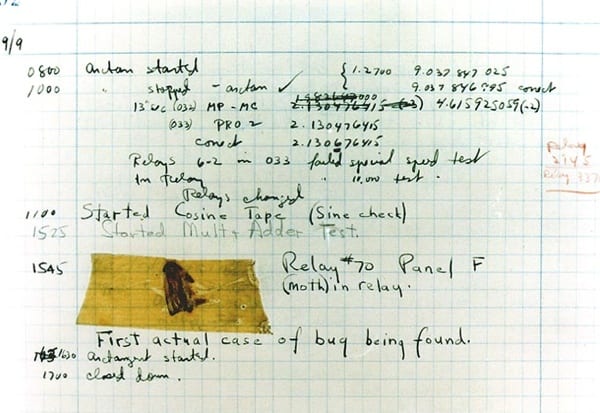 9/9
0800 Antan started { 1.2700 9.037 847 025
1000 " stopped - antan ✓ 9.037 846 995 conect
13"uc (032) MP-MC 2.130476415 (-3) 4.615925059(-2)
(033) PRO 2 2.130476415
conect 2.130676415
Relays 6-2 in 033 failed special speed test
In Relay " 10,000 test .
Relay
2145
Relay 337
Relays changed
1100 Started Cosine Tape (Sine check)
1525 Started Mult + Adder Test.
1545 Relay #70 Panel F
(moth) in relay.
First actual case of bug being found.
1630 Antangent started.
1700 closed down.